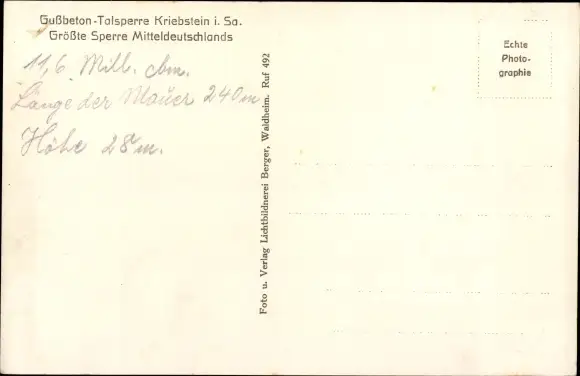 Gußbeton-Talsperre Kriebstein i. Sa.
Größte Sperre Mitteldeutschlands
11,6 Mill. cbm.
Länge der Mauer 240 m
Höhe 28 m.
Foto u. Verlag Lichtbildnerei Berger, Waldheim. Ruf 492
Echte
Photo-
graphie